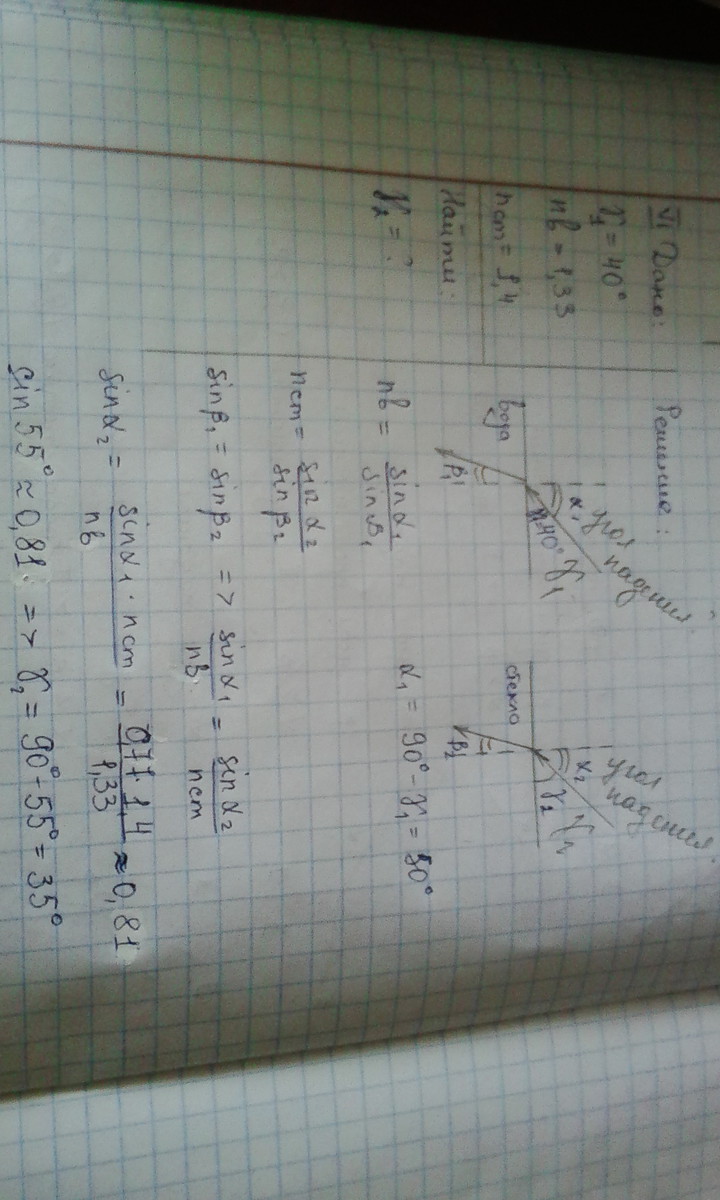 VI Дано:
γ₁ = 40°
nв = 1,33
nст = 1,4
Найти:
γ₂ = ?
Решение:
угол падения
α₁
γ=40°
γ₁
вода
β₁
угол падения
α₂
γ₂
γ₂
стекло
β₂
nв = sinα₁ / sinβ₁
α₁ = 90° - γ₁ = 50°
nст = sinα₂ / sinβ₂
sinβ₁ = sinβ₂ => sinα₁ / nв = sinα₂ / nст
sinα₂ = sinα₁ · nст / nв = 0,77 · 1,4 / 1,33 ≈ 0,81
sin 55° ≈ 0,81 => γ₂ = 90° - 55° = 35°